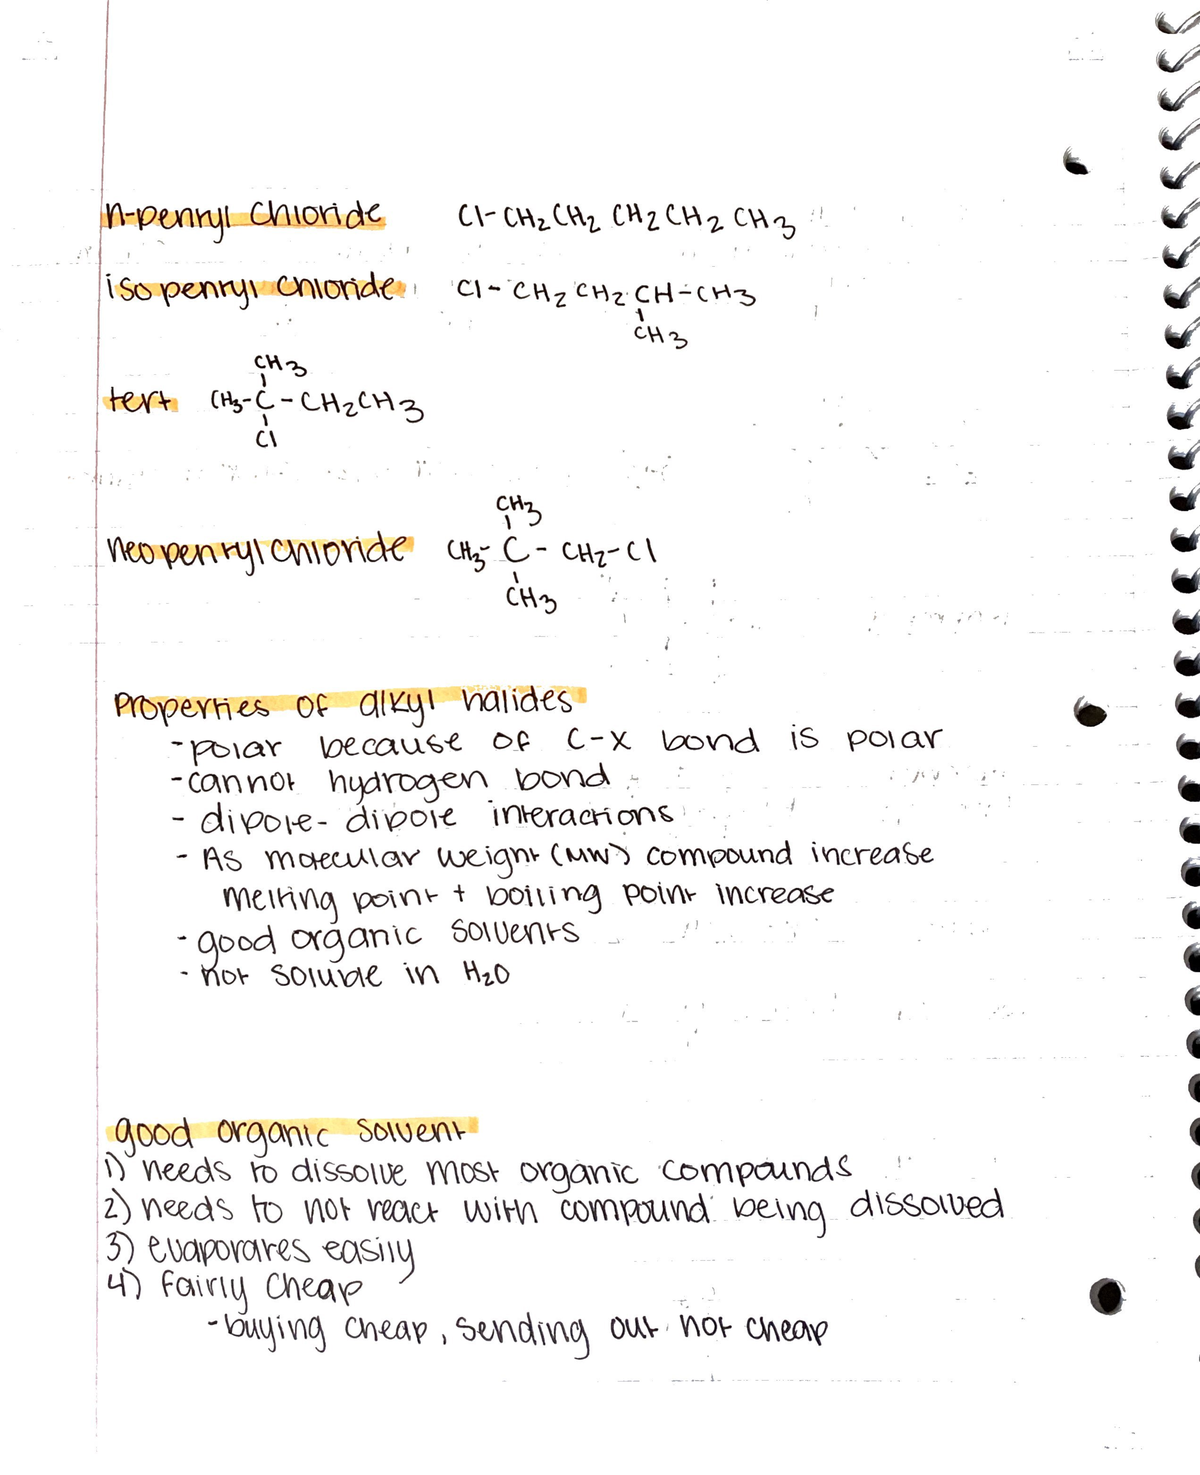 n-pentyl chloride Cl-CH2CH2CH2CH2CH3
isopentyl chloride Cl-CH2CH2CH-CH3
CH3
CH3
tert CH3-C-CH2CH3
Cl
CH3
neopentyl chloride CH3-C-CH2-Cl
CH3
Properties of alkyl halides
-polar because of C-X bond is polar
-cannot hydrogen bond
- dipole-dipole interactions
- As molecular weight (MW) compound increase
melting point + boiling point increase
-good organic solvents
-not soluble in H2O
good organic solvent
1) needs to dissolve most organic compounds
2) needs to not react with compound being dissolved
3) evaporates easily
4) fairly cheap
-buying cheap, sending out not cheap